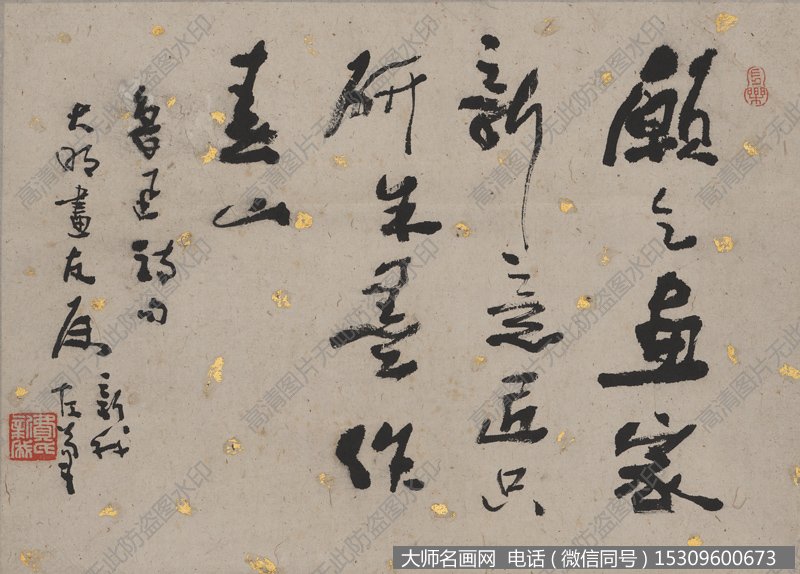 願乞畫家
新意匠只
研朱墨作
春山
魯迅詩句
大明畫友属
新我
左筆
長樂
費氏新我
高清图片无此防盗图水印
大师名画网 电话（微信同号）15309600673